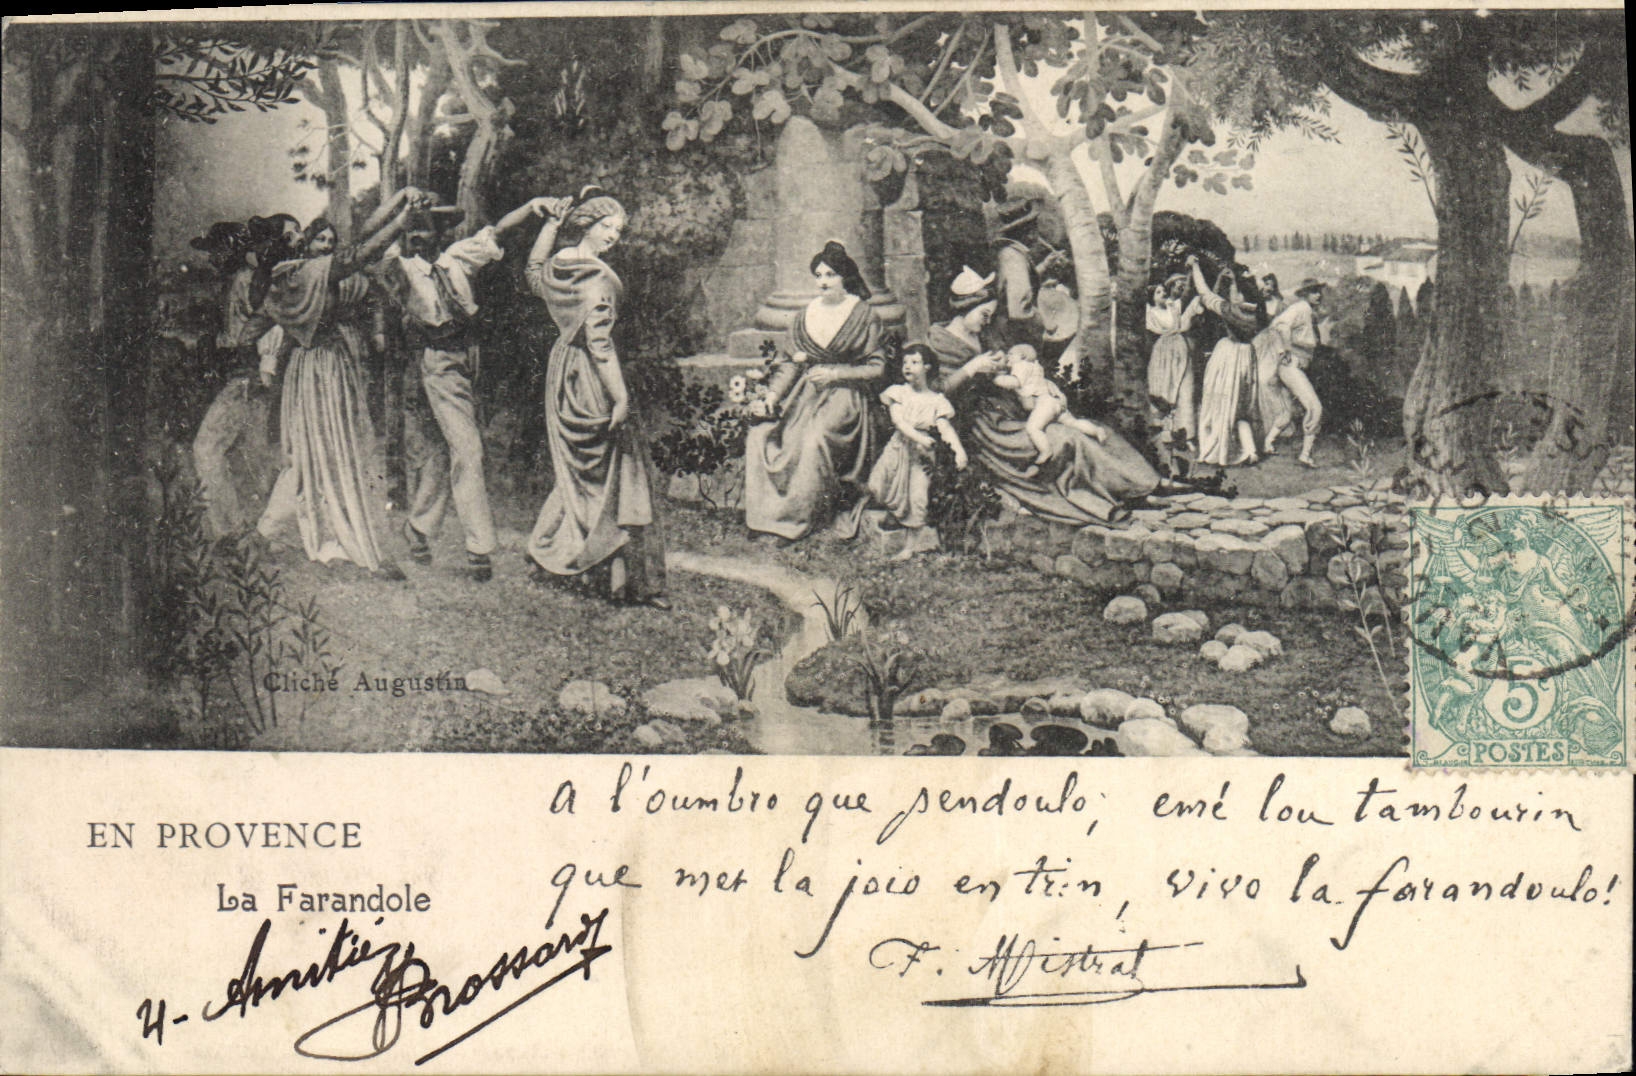 Cliché Augustin
5c
POSTES
EN PROVENCE
La Farandole
A l'oumbro que pendoulo, emé lou tambourin
que met la joio en trin, vivo la farandoulo!
F. Mistral
Amitiés
Brossard